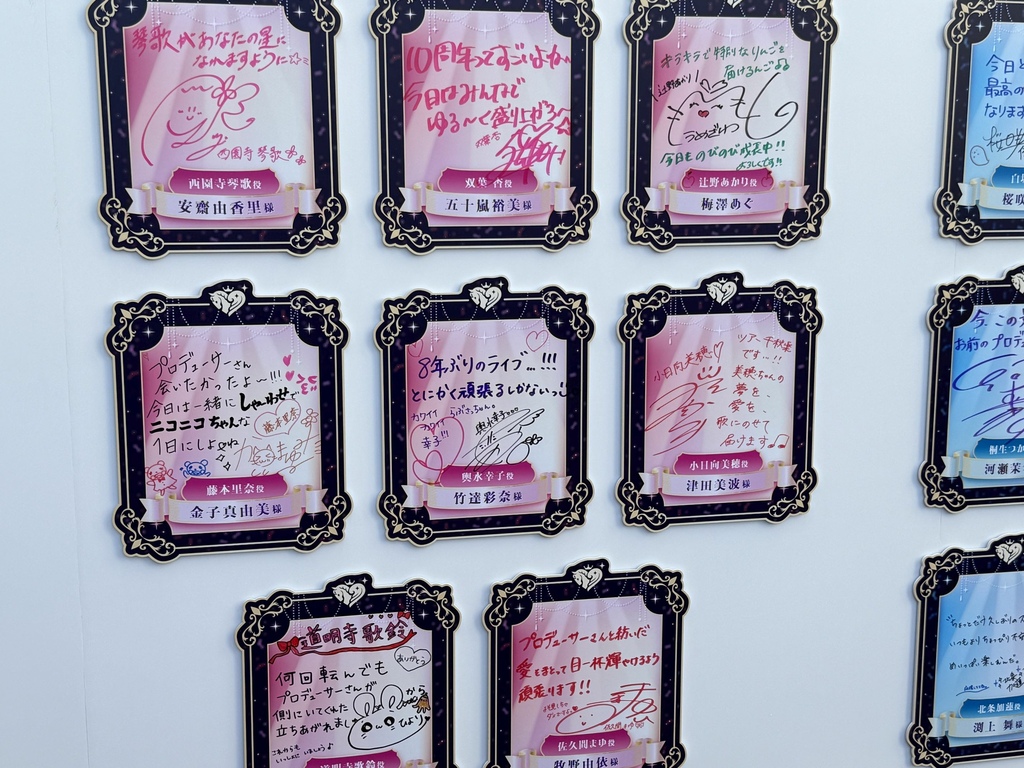 琴歌があなたの星に
なれますように
西園寺琴歌
西園寺琴歌役
安齋由香里様
10周年ってすごいよね
今日はみんなで
ゆる〜く盛り上がろ
双葉杏役
五十嵐裕美様
キラキラで特別なりんごを
届けるんご
辻野あかり
うとめざいつ
今日ものびのび成長中!!
よろしくです!!
辻野あかり役
梅澤めぐ
今日
最高の
なります
桜咲
プロデューサーさん
会いたかったよ〜!!!
今日は一緒にしゃーわせで
ニコニコちゃんな
1日にしよぉね
藤本里奈
藤本里奈役
金子真由美様
8年ぶりのライブ...!!!
とにかく頑張るしかないっ!!
カワイイ
カワイイ
幸子!!!
輿水幸子
輿水幸子役
竹達彩奈様
ツアー千秋楽
です...!!
小日向美穂
美穂ちゃんの
夢を、
愛を、
歌にのせて
届けます
小日向美穂役
津田美波様
今、この
お前のプロデュ
桐生つか
河瀬茉
道明寺歌鈴
ありがとう
何回転んでも
プロデューサーさんが
側にいてくれたから
立ちあがれまし
ひより
これからも
いっしょに いましょうよ
道明寺歌鈴役
プロデューサーさんと紡いだ
愛をまとって目一杯輝やけるよう
頑張ります!!
佐久間まゆ役
牧野由依様
ちょっとだけ久しぶりの
いつもよりちょっぴり
めいっぱい楽しむんだ。
北条加蓮役
渕上 舞様